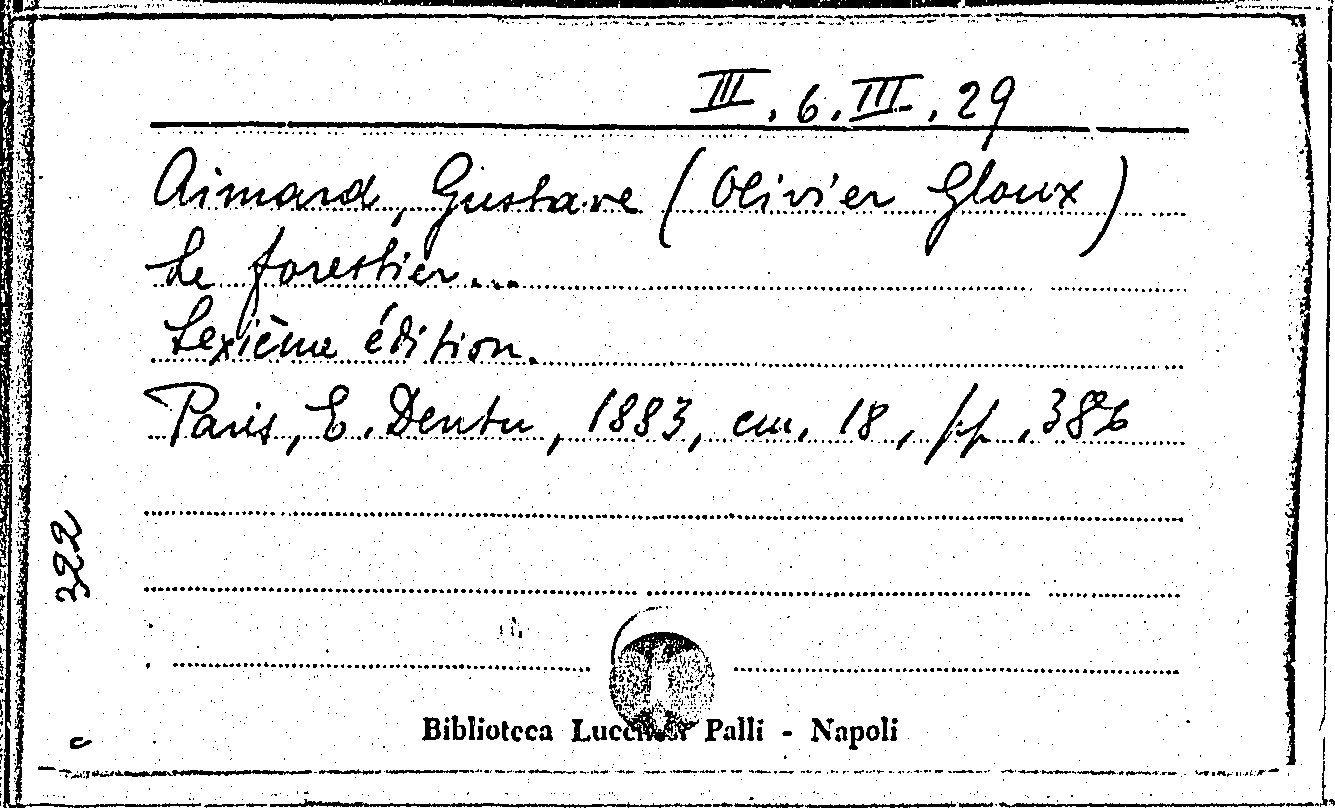 III.6.III.29
Aimard, Gustave (Olivier Gloux)
Le forestier...
Sexième édition.
Paris, E. Dentu, 1883, cm. 18, pp. 386
322
Biblioteca Lucchesi Palli - Napoli